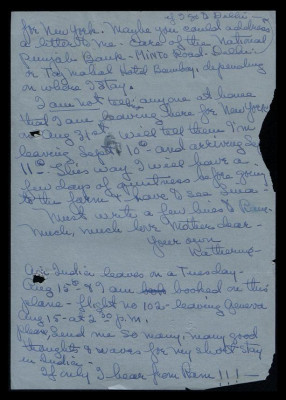 for New York. Maybe you could address
a letter to me - Care of the National
Punjab Bank - Minto Road - Delhi -
or Taj mahal Hotel Bombay, depending
on where I stay.
I am not telling anyone at home
that I am leaving here for New York
on Aug 31st will tell them I'm
leaving Sept 10th - and arriving Sept
11th - This way I will have a
few days of quietness before going
to the farm & have I see
Must write a few lines to
Much, much love Mother dear -
Your own
Katherine
Air-India leaves on a Tuesday -
Aug 15th & I am booked on this
plane - flight no 102 - leaving Geneva
Aug 15 - at 2.30 p.m.
Please send me so many, many good
thoughts & waves for my short stay
in India -
If only I hear from !!! -